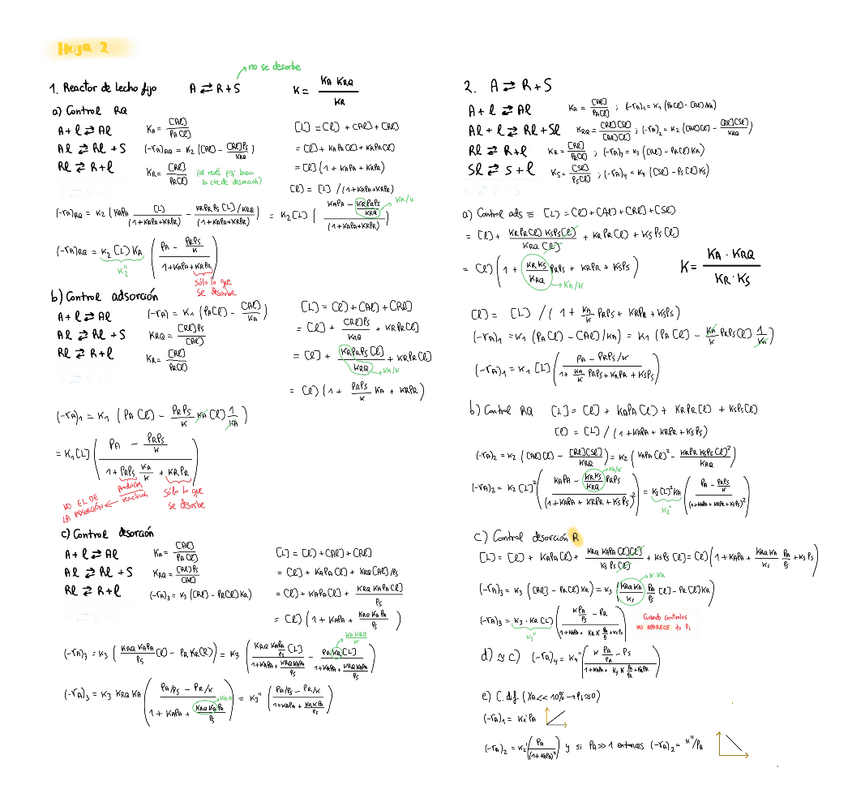 Hoja 2
no se desorbe
1. Reactor de lecho fijo A ⇄ R+S K = KA KRQ / KR
a) Control RQ
A + l ⇄ Al KA = [Al] / PA[l] [L] = [l] + [Al] + [Rl]
Al ⇄ Rl + S (-rA)RQ = K2 ([Al] - [Rl]Ps / KRQ) = [l] + KAPA[l] + KRPR[l]
Rl ⇄ R + l KR = [Rl] / PR[l] = [l] (1 + KAPA + KRPR)
[l] = [L] / (1 + KAPA + KRPR)
(-rA)RQ = K2 (KAPA [L] / (1+KAPA+KRPR) - KRPRPS [L]/KRQ / (1+KAPA+KRPR)) = K2[L] (KAPA - KRPRPS / KRQ / (1+KAPA+KRPR)) KA/K
(-rA)RQ = K2 [L] KA (PA - PRPS / K / 1+KAPA+KRPR)
K2"
sólo lo que
se desorbe
b) Control adsorción
A + l ⇄ Al (-rA)1 = K1 (PA[l] - [Al] / KA) [L] = [l] + [Al] + [Rl]
Al ⇄ Rl + S KRQ = [Rl]Ps / [Al] = [l] + [Rl]Ps / KRQ + KRPR[l]
Rl ⇄ R + l KR = [Rl] / PR[l] = [l] + KRPRPS[l] / KRQ + KRPR[l]
KA/K
= [l] (1 + PRPS / K KA + KRPR)
(-rA)1 = K1 (PA[l] - PRPS / K KA [l] 1 / KA)
= K1[L] (PA - PRPS / K / 1 + PRPS KA / K + KRPR)
NO EL DE productos / reactivos Sólo lo que
se desorbe
c) Control desorción
A + l ⇄ Al KA = [Al] / PA[l] [L] = [l] + [Al] + [Rl]
Al ⇄ Rl + S KRQ = [Rl]Ps / [Al] = [l] + KAPA[l] + KRQ[Al]/Ps
Rl ⇄ R + l (-rA)3 = K3 ([Rl] - PR[l]KR) = [l] + KAPA[l] + KRQ KAPA[l] / Ps
= [l] (1 + KAPA + KRQ KAPA / Ps)
(-rA)3 = K3 (KRQ KAPA / Ps [l] - PR KR[l]) = K3 (KRQ KAPA / Ps [L] / 1+KAPA+ KRQ KAPA / Ps - PR KR[L] / 1+KAPA+ KRQ KAPA / Ps) KA KRQ / K
(-rA)3 = K3 KRQ KA (PA/Ps - PR/K / 1 + KAPA + KRQ KA PA / Ps) = K3" (PA/Ps - PR/K / 1+KAPA+ KRK PA / Ps)
2. A ⇄ R+S
A + l ⇄ Al KA = [Al] / PA[l] ; (-rA)1 = K1 (PA[l] - [Al]/KA)
Al + l ⇄ Rl + Sl KRQ = [Rl][Sl] / [Al][l] ; (-rA)2 = K2 ([Al][l] - [Rl][Sl] / KRQ)
Rl ⇄ R + l KR = [Rl] / PR[l] ; (-rA)3 = K3 ([Rl] - PR[l]KR)
Sl ⇄ S + l KS = [Sl] / Ps[l] ; (-rA)4 = K4 ([Sl] - Ps[l]Ks)
a) Control ads ≡ [L] = [l] + [Al] + [Rl] + [Sl]
= [l] + KRPR[l] KSPS[l] / KRQ [l] + KRPR[l] + KSPS[l]
= [l] (1 + KRKS / KRQ PRPS + KRPR + KSPS) K = KA · KRQ / KR · KS
KA/K
[l] = [L] / (1 + KA / K PRPS + KRPR + KSPS)
(-rA)1 = K1 (PA[l] - [Al]/KA) = K1 (PA[l] - KA / K PRPS[l] 1 / KA)
(-rA)1 = K1 [L] (PA - PRPS/K / 1 + KA / K PRPS + KRPR + KSPS)
b) Control RQ [L] = [l] + KAPA[l] + KRPR[l] + KSPS[l]
[l] = [L] / (1 + KAPA + KRPR + KSPS)
(-rA)2 = K2 ([Al][l] - [Rl][Sl] / KRQ) = K2 (KAPA[l]² - KRPR KSPS[l]² / KRQ)
(-rA)2 = K2 [L]² (KAPA - KRKS / KRQ PRPS / (1 + KAPA + KRPR + KSPS)²) = K2[L]²KA (PA - PRPS / K / (1+KAPA+KRPR+KSPS)²)
KA/K K2"
c) Control desorción R
[L] = [l] + KAPA[l] + KRQ KAPA[l][l] / KSPS[l] + KSPS[l] = [l] (1 + KAPA + KRQ KA / KS PA / Ps + KSPS)
(-rA)3 = K3 ([Rl] - PR[l]KR) = K3 (KRQ KA / KS PA / Ps [l] - PR[l]KR) K·KR
(-rA)3 = K3 · KR [L] (K PA / Ps - PR / 1+KAPA + KR K PA / Ps + KSPS) Cuando controlas
K3" no aparece tu Pi
d) ≈ c) (-rA)4 = K4" (K PA / PR - Ps / 1+KAPA + KS K PA / PR + KRPR)
e) C. dif (XA << 10% → Pi ≈ 0)
(-rA)1 = K1 PA
(-rA)2 = K2" (PA / (1+KAPA)²) y si PA >> 1 entonces (-rA)2 = K"/PA